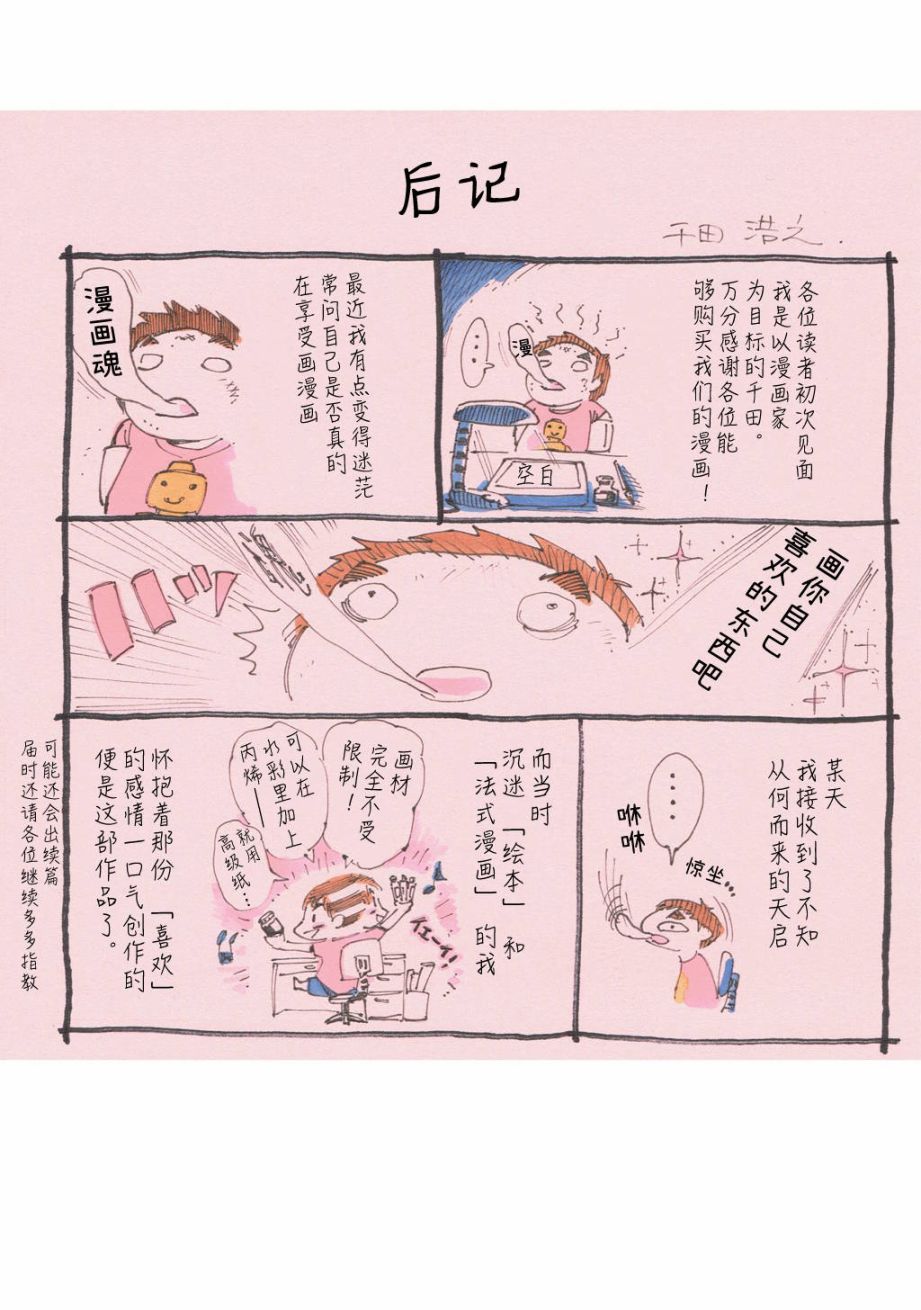 后记
千田 浩之.
各位读者初次见面
我是以漫画家
为目标的千田。
万分感谢各位能
够购买我们的漫画！
…
漫
空白
最近我有点变得迷茫
常问自己是否真的
在享受画漫画
漫画魂
画你自己
喜欢的东西吧
バッ
某天
我接收到了不知
从何而来的天启
……
咻
咻
惊坐…
而当时
沉迷「绘本」和
「法式漫画」的我
画材
完全不受
限制！
可以在
水彩里加上
丙烯——
就用
高级纸…
イエーイ！
怀抱着那份「喜欢」
的感情一口气创作的
便是这部作品了。
可能还会出续篇
届时还请各位继续多多指教